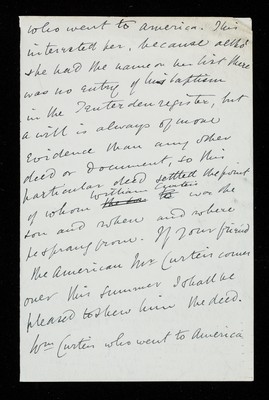 who went to America. This
interested her, because altho'
she had the name on her list there
was no entry of his baptism
in the Tenterden register, but
a will is always of more
Evidence than any other
deed or document, so this
particular deed settled the point
William Curteis
of whom the was the
son and when and where
he sprang from. If your friend
the American Mr Curteis comes
over this summer I shall be
pleased to shew him the deed.
Wm Curteis who went to America